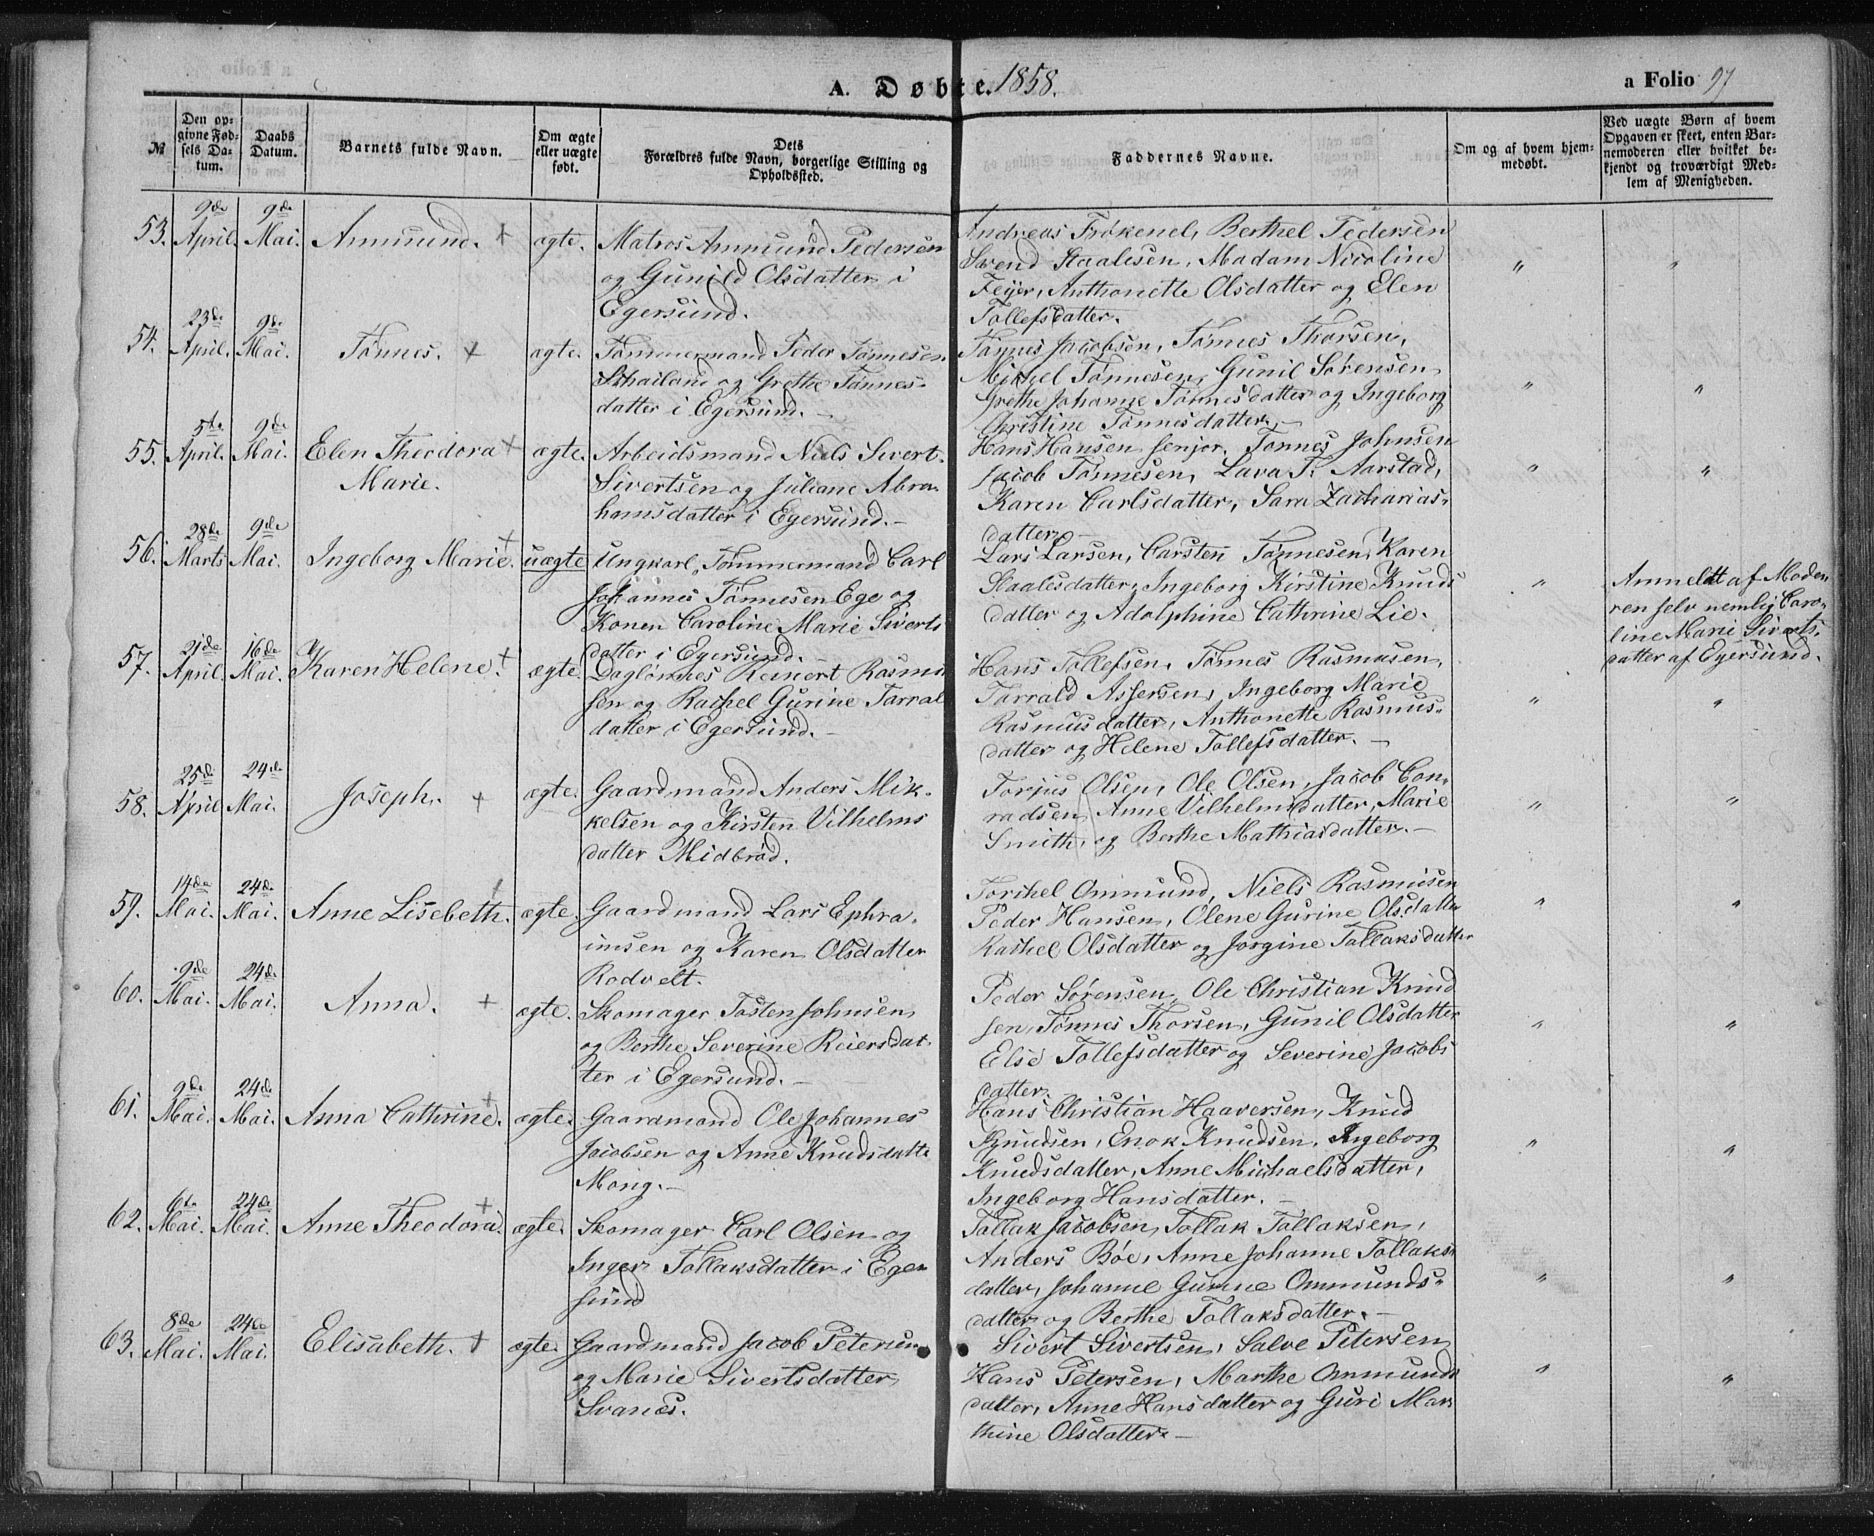 A. Døbte. 1858.
a Folio 97
№
Den opgivne Fødsels Datum.
Daabs Datum.
Barnets fulde Navn.
Om ægte eller uægte født.
Dets Forældres fulde Navn, borgerlige Stilling og Opholdssted.
Faddernes Navne.
Om og af hvem hjemmedøbt.
Ved uægte Børn af hvem Opgaven er skeet, enten Barnemoderen eller hvilket bekjendt og troværdigt Medlem af Menigheden.
53. 9de April. 9de Mai. Ammund. + ægte.
Matros Ammund Pedersen
og Gunild Olsdatter i
Egersund.
Andreas Frøkenel, Berthel Pedersen
Svend Staalesen, Madam Nicoline
Feyer, Anthonette Olsdatter og Elen
Tollefsdatter.
" "
54. 23de April. 9de Mai. Tønnes. + ægte.
Tømmermand Peder Tønnesen
og Grethe Tønnes-
datter i Egersund.
Tønnes Jacobsen, Tønnes Thorsen,
Michel Tønnesen, Gunil Sørensen
Grethe Johanne Tønnesdatter og Ingeborg
Christine Tønnesdatter.
" "
55. 5te April. 9de Mai. Elen Theodora + ægte.
Marie.
Arbeidsmand Niels Sivert
Sivertsen og Juliane Abra-
hamsdatter i Egersund.
Hans Hansen senjor, Tønnes Johnsen
Jacob Tønnesen, Lava T. Aarstad,
Karen Carlsdatter, Sara Zacharias-
datter.
" "
56. 28de Marts 9de Mai. Ingeborg Marie. + uægte
Ungkarl, Tømmermand Carl
Johannes Tønnesen Ege og
Konen Caroline Marie Siverts
datter i Egersund.
Lars Larsen, Carsten Tønnesen, Karen
Staalesdatter, Ingeborg Kirstine Knuds
datter og Adolphine Cathrine Lie.
"
Anmeldt af Mode-
ren selv nemlig Caro-
line Marie Siverts-
datter af Egersund.
57. 21de April. 16de Mai. Karen Helene. + ægte.
Daglønnes Reinert Rasmu
sen og Rachel Gurine Tarral
datter i Egersund.
Hans Tollefsen, Tønnes Rasmusen,
Tarrald Assersen, Ingeborg Marie
Rasmusdatter, Anthonette Rasmus-
datter og Helene Tollefsdatter.
" "
58. 25de April 24de Mai. Joseph. + ægte.
Gaardmand Anders Mik-
kelsen og Kirsten Vilhelms
datter Midbrød.
Torjus Olsen, Ole Olsen, Jacob Con-
radsen Anne Vilhelmsdatter, Marie
Smith, og Berthe Mathiasdatter.
" "
59. 14de Mai. 24de Mai. Anne Lisebeth. + ægte.
Gaardmand Lars Ephra-
imsen og Karen Olsdatter
Rodvelt.
Torchel Ommund, Niels Rasmusen
Peder Hansen, Olene Gurine Olsdatter
Rachel Olsdatter og Jorgine Tollaksdatter
" "
60. 9de Mai. 24de Mai. Anna. + ægte.
Skomager Tosten Johnsen
og Berthe Severine Reiersdat-
ter i Egersund.
Peder Sørensen, Ole Christian Knud
sen, Tønnes Thorsen, Gunil Olsdatter
Else Tollefsdatter og Severine Jacobs
datter.
" "
61. 9de Mai. 24de Mai. Anna Cathrine. + ægte.
Gaardmand Ole Johannes
Jacobsen og Anne Knudsdatte
Mong.
Hans Christian Haaversen, Knud
Knudsen, Enok Knudsen, Ingeborg
Knudsdatter, Anne Michaelsdatter,
Ingeborg Hansdatter.
" "
62. 6te Mai. 24de Mai. Anne Theodora. + ægte.
Skomager Carl Olsen og
Inger Tollaksdatter i Eger
sund
Tollak Jacobsen, Tollak Tollaksen,
Anders Bøe, Anne Johanne Tollaks-
datter, Johanne Gurine Ommunds-
datter og Berthe Tollaksdatter.
" "
63. 8de Mai. 24de Mai. Elisabeth. + ægte.
Gaardmand Jacob Petersen
og Marie Sivertsdatter
Svanes.
Sivert Sivertsen, Salve Petersen
Hans Petersen, Marthe Ommunds
datter, Anne Hansdatter og Guri Mar
thine Olsdatter.
" "